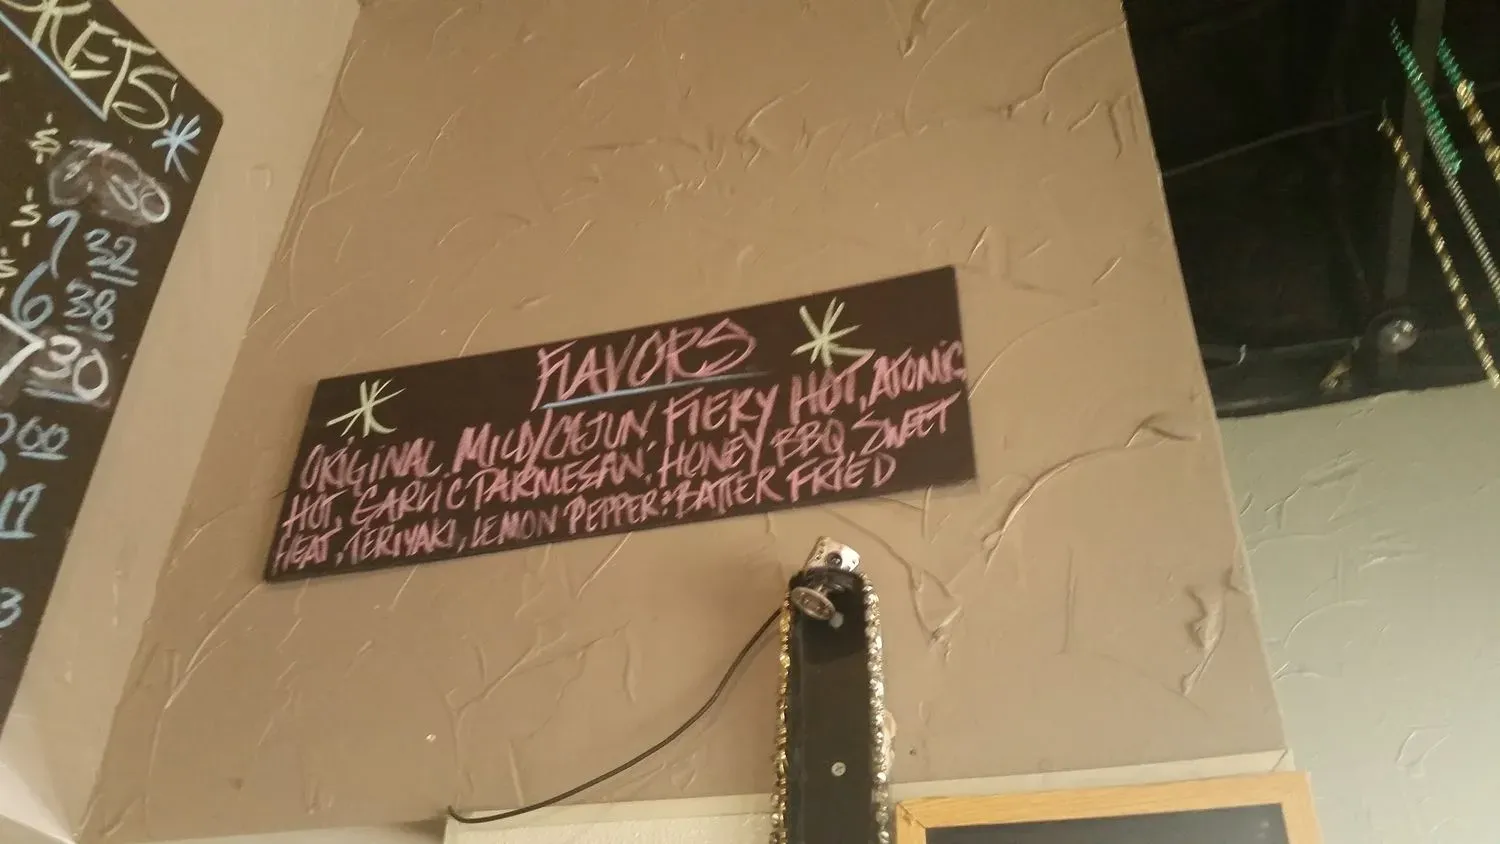 KETS
30
7 32
6 38
30
00
19
3
FLAVORS
ORIGINAL, MILD/CEJUN, FIERY HOT, ATOMIC
HOT, GARLIC PARMESAN, HONEY BBQ, SWEET
HEAT, TERIYAKI, LEMON PEPPER & BATTER FRIED